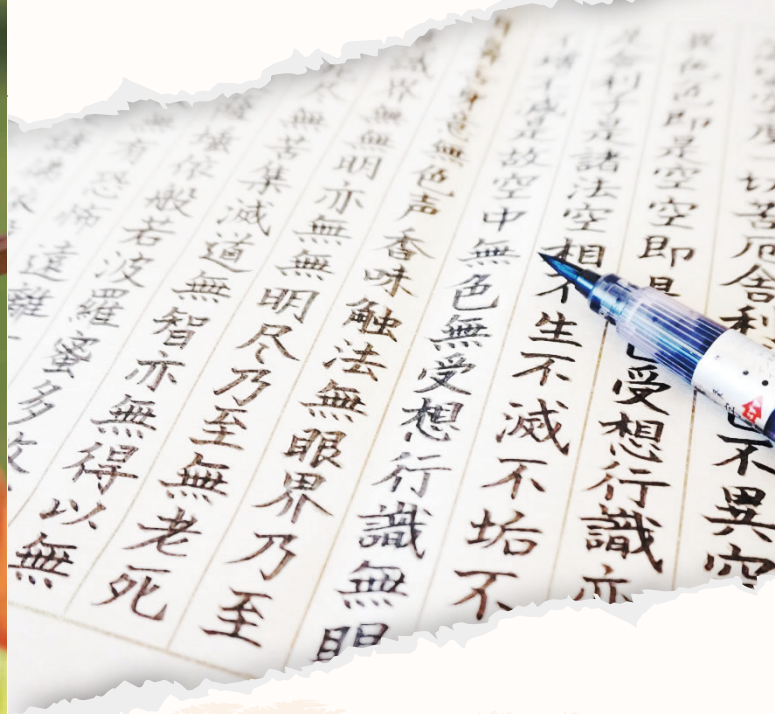 度一切苦厄舎利不異空
異色色即是空空即是色受想行識亦
是舎利子是諸法空相不生不滅不垢不
不増不減是故空中無色無受想行識無眼
身意無色声香味触法無眼界乃至
識界無無明亦無無明尽乃至無老死
尽無苦集滅道無智亦無得以無
埵依般若波羅蜜多故
無有恐怖遠離